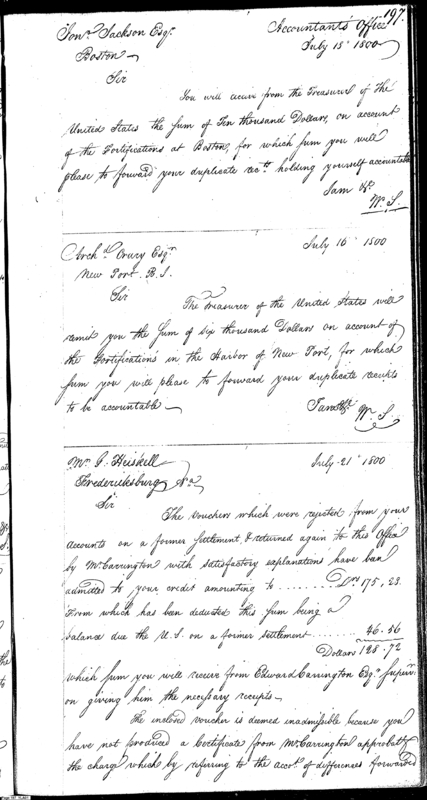 197.
Jonn. Jackson Esqr. Accountants Office
Boston July 15th 1800
Sir
You will receive from the Treasurer of the
United States the sum of Ten thousand Dollars, on account
of the Fortifications at Boston, for which sum you will
please to forward your duplicate rects. holding yourself accountable
I am &c.
W. S.
Archd. Crary Esqr. July 16th 1800
New Port R. I.
Sir
The Treasurer of the United States will
remit you the sum of six thousand Dollars on account of
the Fortifications in the Harbor of New Port, for which
sum you will please to forward your duplicate receipts
to be accountable
I am &c.
W. S.
Mr. G. Heiskell July 21st 1800
Fredericksburg Va
Sir
The vouchers which were rejected from your
accounts on a former settlement, & returned again to this Office
by Mr. Carrington with satisfactory explanations have been
admitted to your credit amounting to ....... Drs 175,23.
From which has been deducted this sum being a
balance due the U.S. on a former settlement ..... 46.56
Dollars 128.72
which sum you will receive from Edward Carrington Esqr. Superv.
on giving him the necessary receipts
The inclosed voucher is deemed inadmissible because you
have not produced a Certificate from Mr. Carrington approbatg.
the charge which by referring to the accot. of differences forwarded